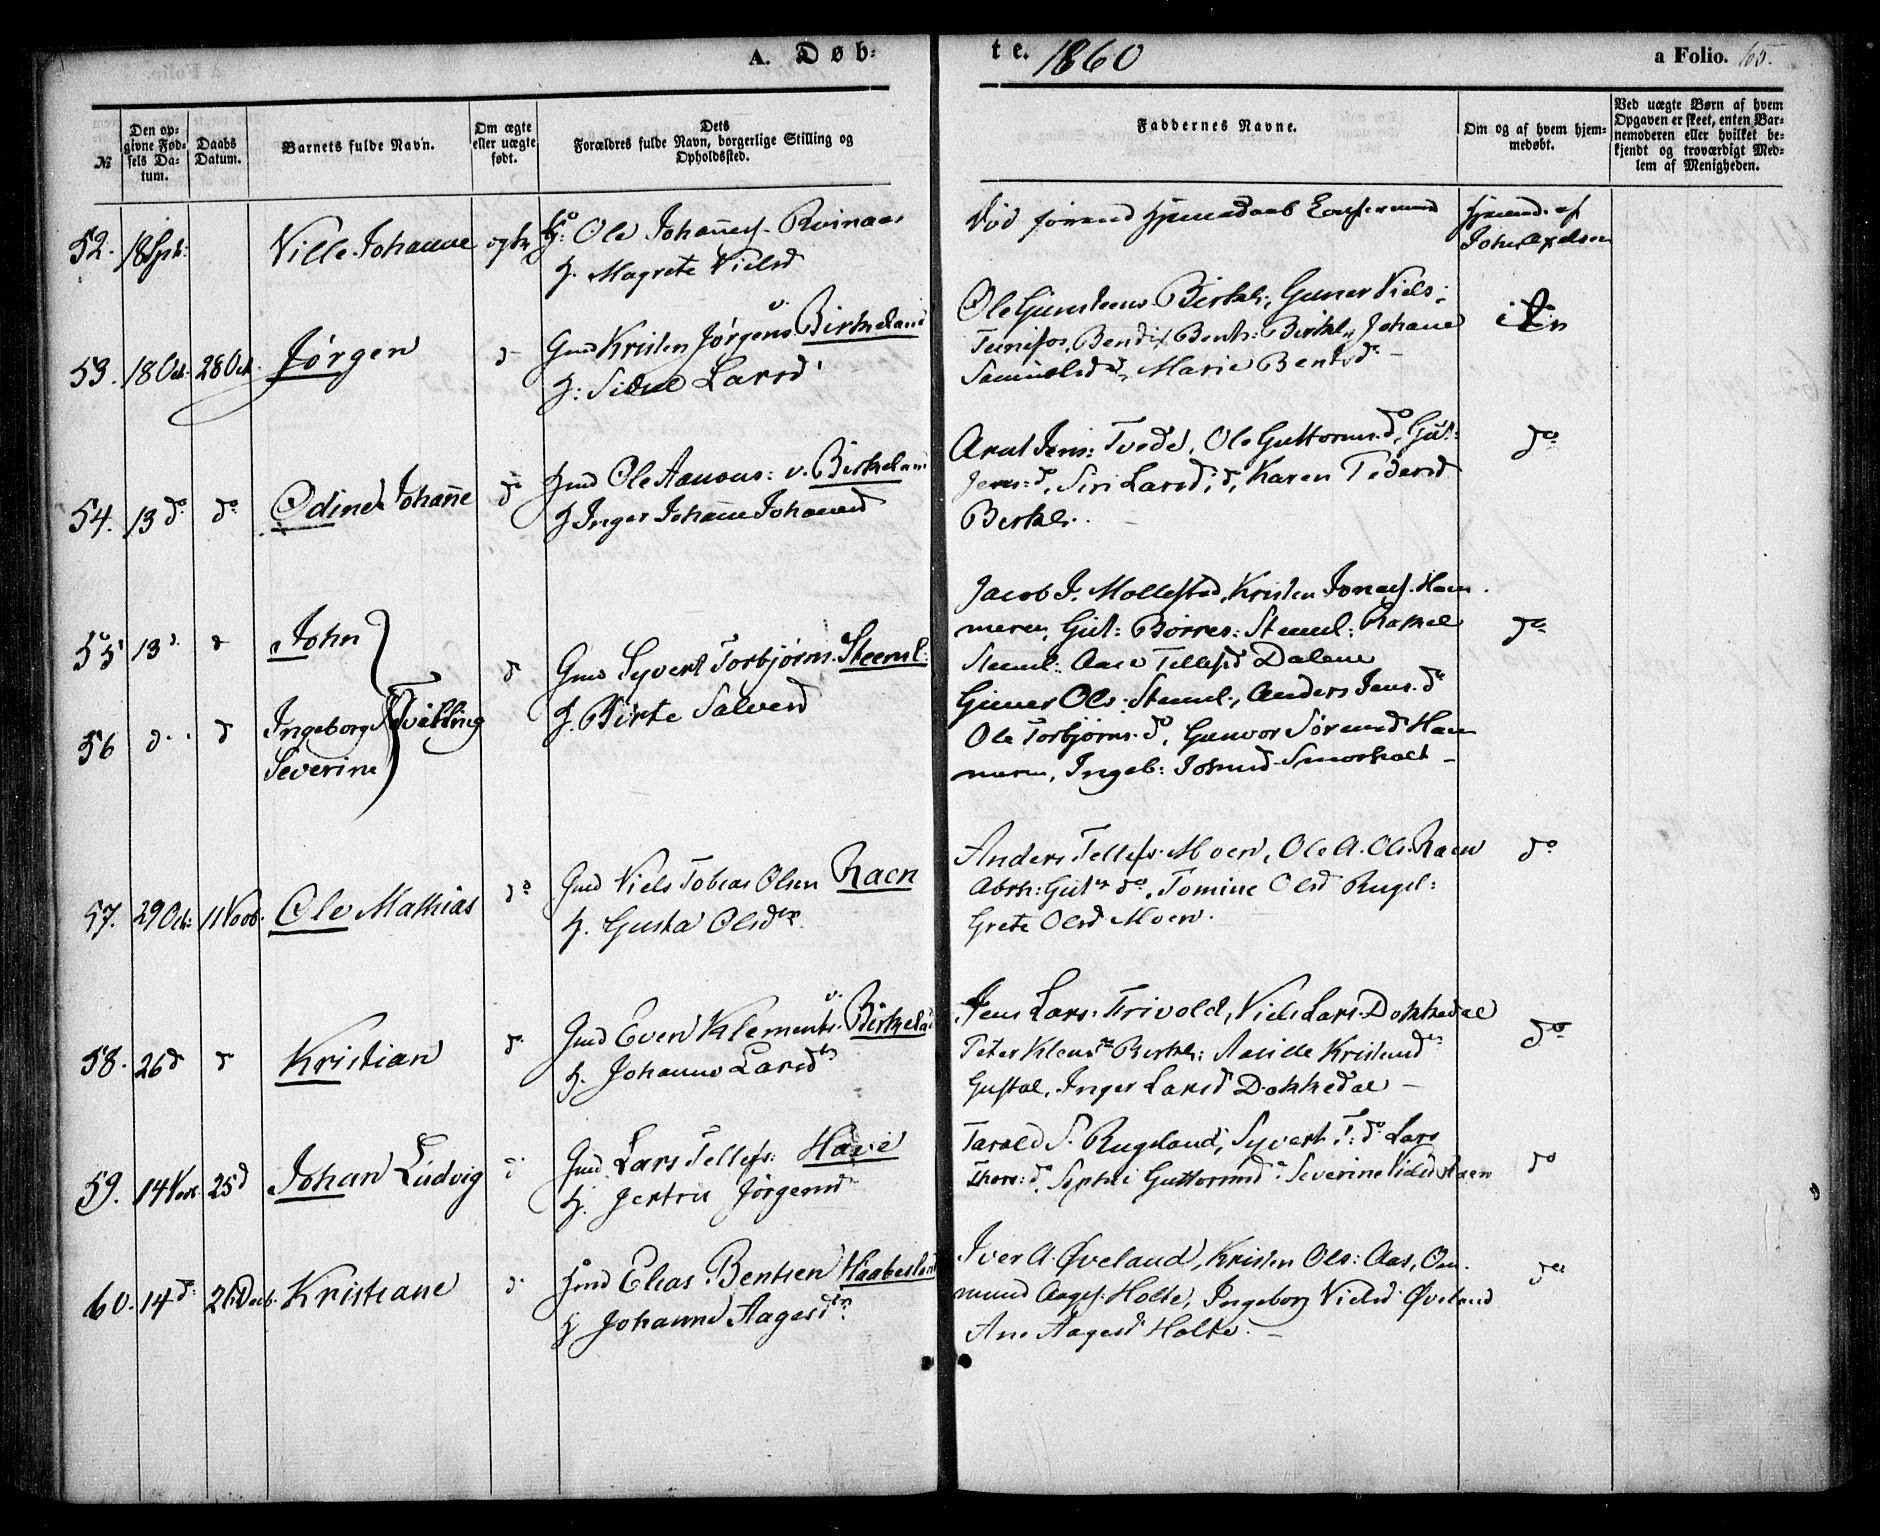 A. Døb-
te. 1860
a Folio. 65.
№
Den op-
givne Fød-
sels Da-
tum.
Daabs
Datum.
Barnets fulde Navn.
Om ægte
eller uægte
født.
Dets
Forældres fulde Navn, borgerlige Stilling og
Opholdssted.
Faddernes Navne.
Om og af hvem hjem-
medøbt.
Ved uægte Børn af hvem
Opgaven er skeet, enten Bar-
nemoderen eller hvilket be-
kjendt og troværdigt Med-
lem af Menigheden.
52. 18 Sept: Nille Johanne ægte Ole Johannes.
H. Magrete Nielsd
Død forend Hjemedaab
Hjemd. af
53. 18 Oct: 28 Oct. Jørgen d Gmd Kristen Jørgens. v. Birkeland
H: Larsd
Ole Gunsteens Birkel:, Guner Niels:
Bendix Bents: Birkel: Johane
Samuelsd do, Marie Bentsd do
54. 13 do do Odine Johanne do Hmd Ole Aanons: v. Birkeland
H Inger Johane Johansd
Arnt Jens: Tvede, Ole Guttorms. do, Gut:
Jens: d, Siri Larsd; d, Karen Pedersd
Birkel:
do
55 13 d d John
Gmd Syvert Torbjørns. Steeml:
H. Birte Salvesd
56 d. d Ingeborg Tvilling
Severine
Jacob J. Mollestad, Kristen Jonass. Ham
meren, Gut: Børres: Steml: Rakel
Steml: Aase Tellefsd Dalene
Guner Ols: Steml:, Anders Jens. do
Ole Torbjørns. do, Gunvor Sørensd Ham
meren, Ingeb:
do
57. 29 Oct: 11 Novb. Ole Mathias do Gmd Niels Tobias Olsen Raen
H. Gusta Olsdtr.
Anders Tellefs. Moen, Ole A. Ols. Raen
Abrh: Gut. do, Tomine Olsd Rugsl:
Grete Olsd Moen.
do
58. 26 d d Kristian d. Gmd Even Klements. v. Birkeland
H. Johanne Larsdtr
Jens Lars: Frivold, Niels Lars. Dokkedal
Peter Klem Birkl:
Gustal, Inger Larsd Dokkedal
do
59. 14 Nov. 25 d Johan Ludvig d Gmd Lars Tellefs: Have
H. Jertru Jørgensd
Tarald S. Rugsland, Syvert T: do Lars
Thors: d, Sophie Guttormsd Severine Nielsd Raen
do
60. 14 d. 26 Decb. Kristiane d Hmd Elias Bentsen Haabesland
H Johanne Aagesdtr.
Iver A. Øveland, Kristen Ols: Aas, Om
mund Aages: Holte, Ingeborg Nielsd. Øveland
Ane Aagesd Holte.
do